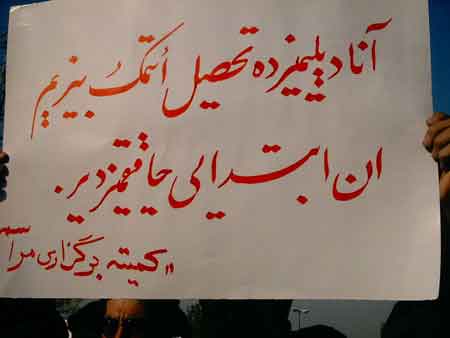 آنا دیلیمیزده تحصیل ائتمک بیزیم
ان ابتدایی حاقیمیزدیر.
"کمیته برگزاری مراسم